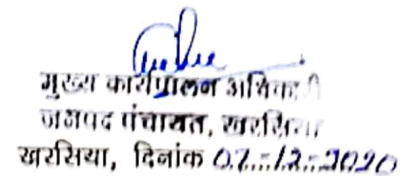 मुख्य कार्यपालन अधिकारी
जनपद पंचायत, खरसिया
खरसिया, दिनांक 07..12..2020